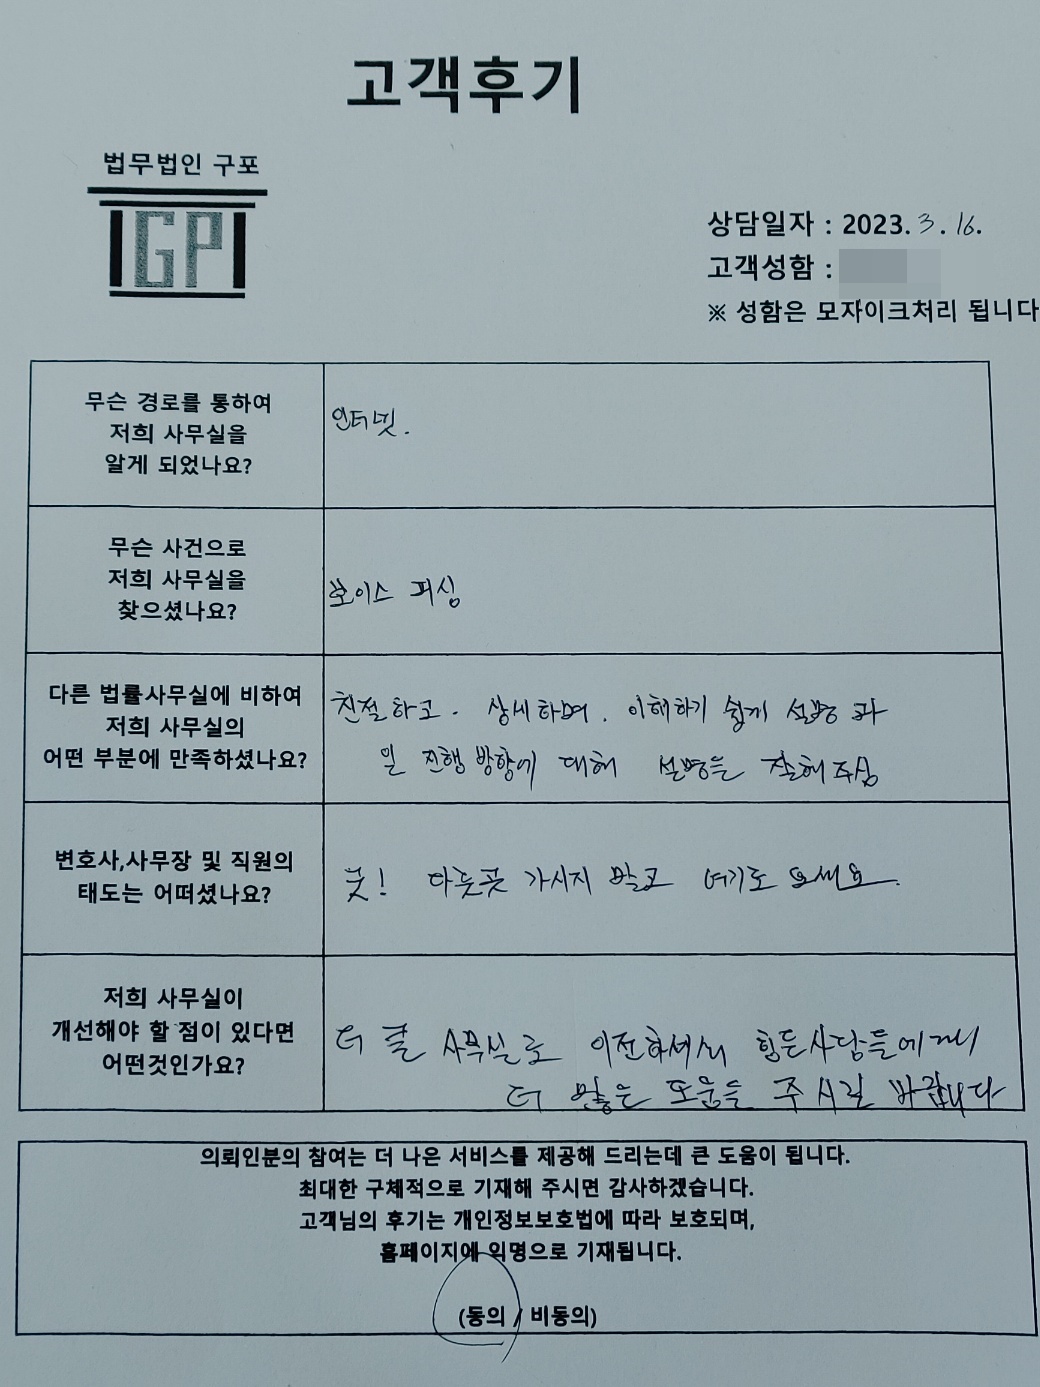 고객후기
법무법인 구포
GP
상담일자 : 2023. 3. 16.
고객성함 :
※ 성함은 모자이크처리 됩니다
무슨 경로를 통하여
저희 사무실을
알게 되었나요?
인터넷.
무슨 사건으로
저희 사무실을
찾으셨나요?
보이스 피싱
다른 법률사무실에 비하여
저희 사무실의
어떤 부분에 만족하셨나요?
친절하고. 상세하며. 이해하기 쉽게 설명과
일 진행 방향에 대해 설명을 잘해 주심
변호사,사무장 및 직원의
태도는 어떠셨나요?
굿! 다른곳 가시지 말고 여기로 오세요.
저희 사무실이
개선해야 할 점이 있다면
어떤것인가요?
더 큰 사무실로 이전하셔서 힘든사람들에게
더 많은 도움을 주시길 바랍니다
의뢰인분의 참여는 더 나은 서비스를 제공해 드리는데 큰 도움이 됩니다.
최대한 구체적으로 기재해 주시면 감사하겠습니다.
고객님의 후기는 개인정보보호법에 따라 보호되며,
홈페이지에 익명으로 기재됩니다.
(동의 / 비동의)